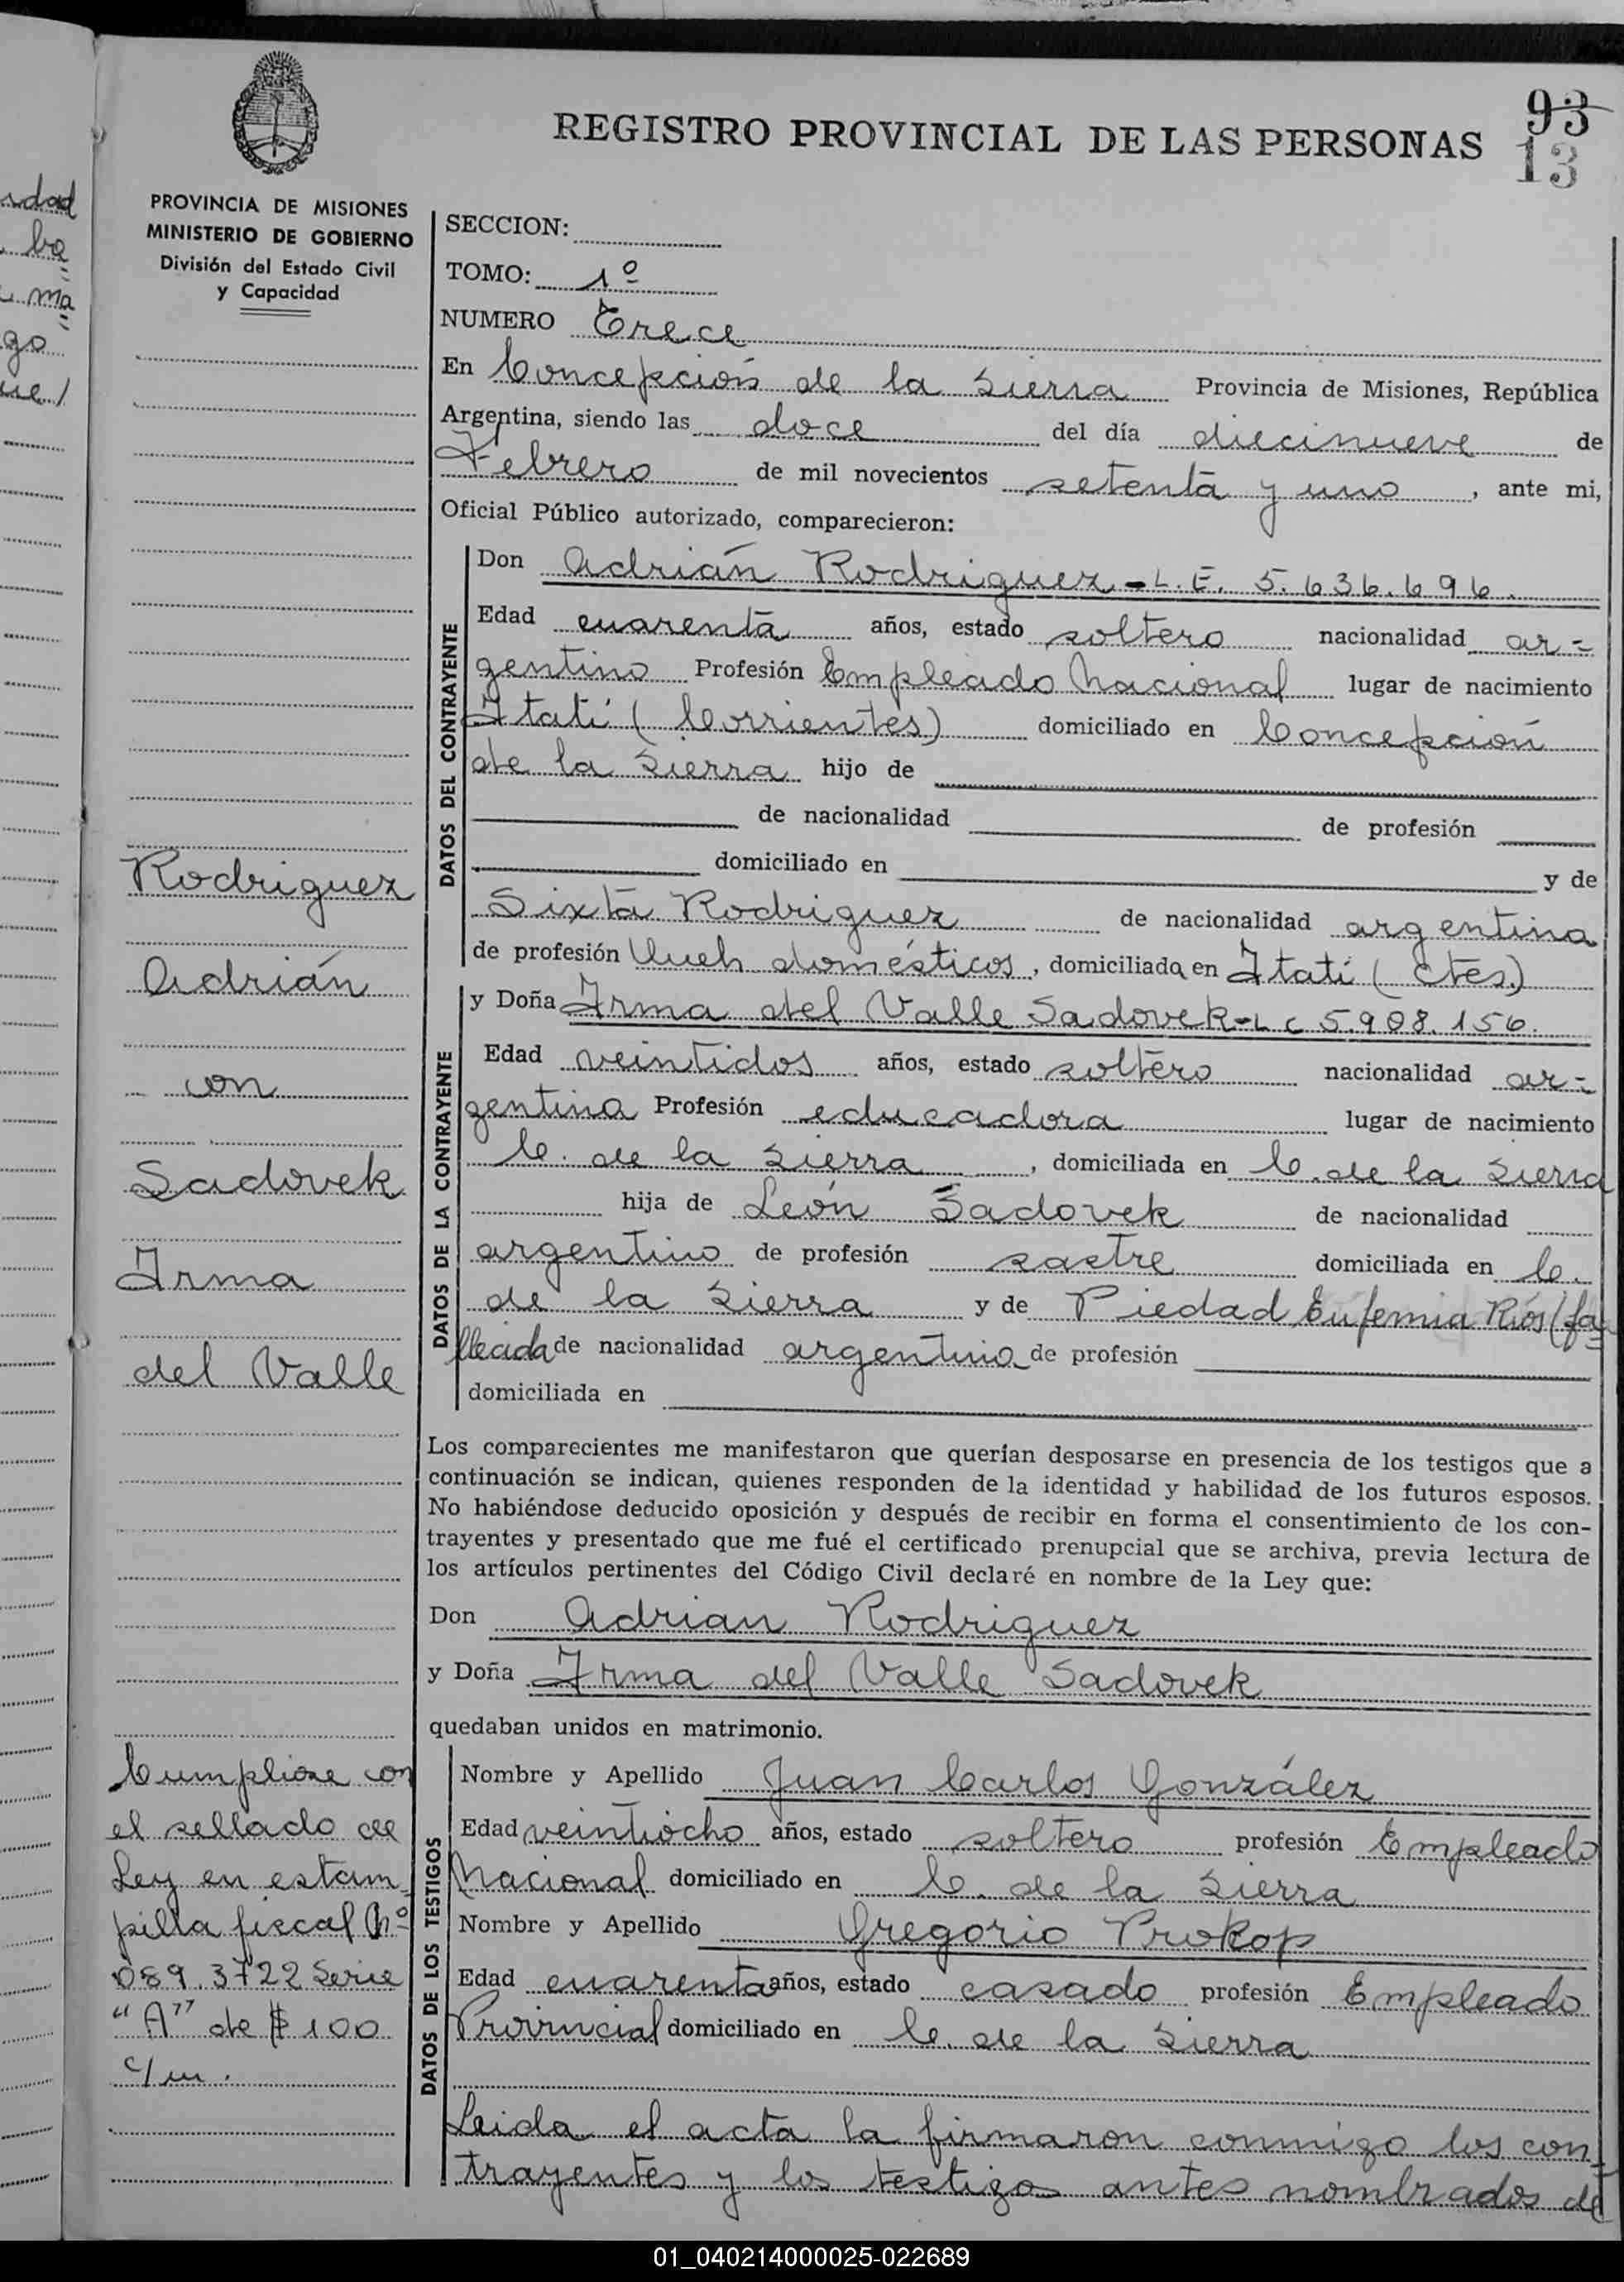 REGISTRO PROVINCIAL DE LAS PERSONAS
93
13
PROVINCIA DE MISIONES
MINISTERIO DE GOBIERNO
División del Estado Civil
y Capacidad
SECCION:
TOMO: 1º
NUMERO Trece
En Concepción de la Sierra Provincia de Misiones, República
Argentina, siendo las doce del día diecinueve de
Febrero de mil novecientos setenta y uno, ante mi,
Oficial Público autorizado, comparecieron:
DATOS DEL CONTRAYENTE
Don Adrián Rodriguez - L. E. 5.636.696.
Edad cuarenta años, estado soltero nacionalidad ar=
gentino Profesión Empleado Nacional lugar de nacimiento
Itatí (Corrientes) domiciliado en Concepción
de la Sierra hijo de
de nacionalidad de profesión
domiciliado en y de
Sixta Rodriguez de nacionalidad argentina
de profesión domésticos, domiciliada en Itatí (Ctes.)
DATOS DE LA CONTRAYENTE
y Doña Irma del Valle Sadovek - L C 5.908.156.
Edad veintidos años, estado soltero nacionalidad ar=
gentina Profesión educadora lugar de nacimiento
C. de la Sierra, domiciliada en C. de la Sierra
hija de León Sadovek de nacionalidad
argentino de profesión sastre domiciliada en C.
de la Sierra y de Piedad Eufemia Ríos (fa
llecida de nacionalidad argentina de profesión
domiciliada en
Los comparecientes me manifestaron que querían desposarse en presencia de los testigos que a
continuación se indican, quienes responden de la identidad y habilidad de los futuros esposos.
No habiéndose deducido oposición y después de recibir en forma el consentimiento de los con-
trayentes y presentado que me fué el certificado prenupcial que se archiva, previa lectura de
los artículos pertinentes del Código Civil declaré en nombre de la Ley que:
Don Adrian Rodriguez
y Doña Irma del Valle Sadovek
quedaban unidos en matrimonio.
DATOS DE LOS TESTIGOS
Nombre y Apellido Juan Carlos González
Edad veintiocho años, estado soltero profesión Empleado
Nacional domiciliado en C. de la Sierra
Nombre y Apellido Gregorio Prokop
Edad cuarenta años, estado casado profesión Empleado
Provincial domiciliado en C. de la Sierra
Leida el acta la firmaron conmigo los con
trayentes y los testigos antes nombrados de
Rodriguez
Adrián
con
Sadovek
Irma
del Valle
Cumpliose con
el sellado de
Ley en estam=
pilla fiscal Nº
089.3722 Serie
"A" de $ 100
c/u.
rdad
ma
go
01_040214000025-022689